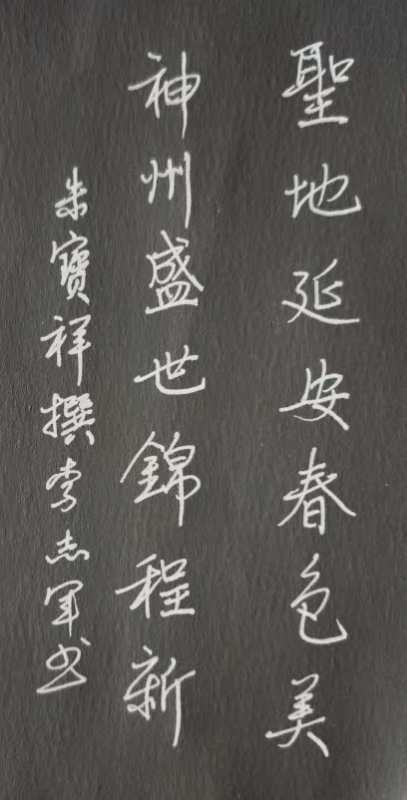 聖地延安春色美
神州盛世錦程新
朱寶祥撰李志军书